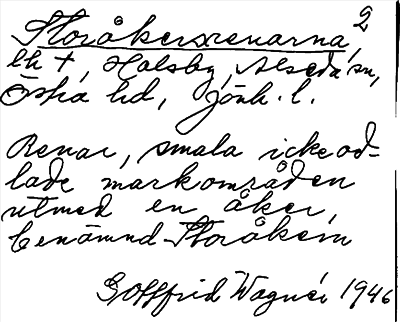 Storåkersrenarna, 2
lh +, Holsby, Alseda sn,
Östra hd, Jönk. l.
Renar, smala icke od-
lade markområden
utmed en åker,
benämnd Storåkern
Gottfrid Wagnér 1946